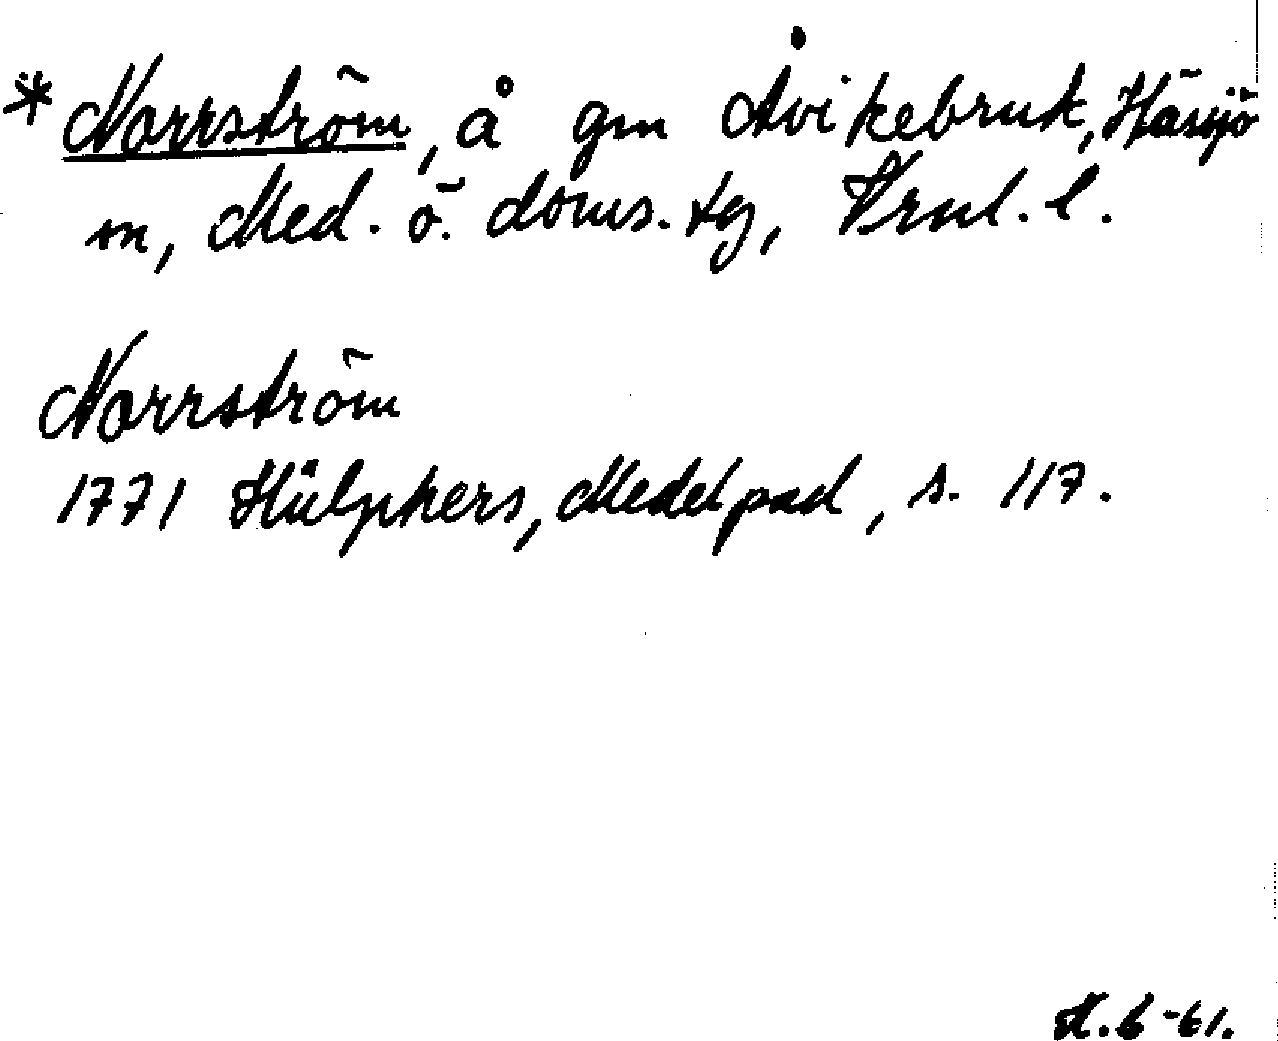 * Norrström, å gm Åvikebruk, Hässjö
sn, Med. ö. doms. tg, Vrnl. l.
Norrström
1771 Hülphers, Medelpad, s. 117.
H. 6-61.